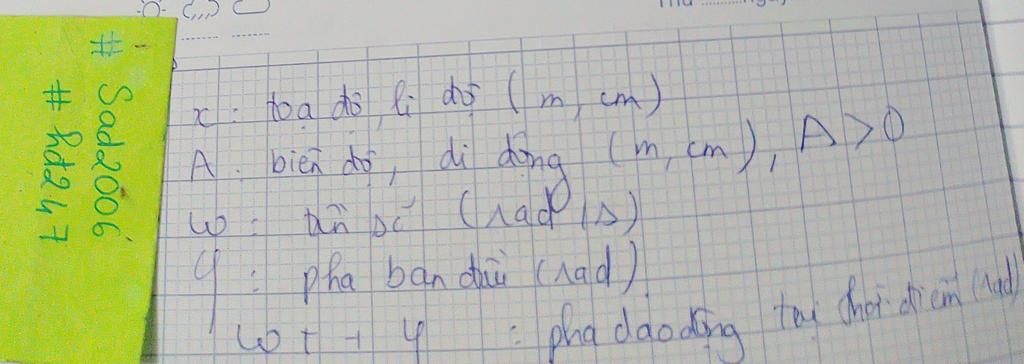 Thứ ..........ngày
# Sad2006
# hd247
x : toạ độ, li độ (m, cm)
A : biên độ, di động (m, cm), A > 0
ω : tần số (rad/s)
φ : pha ban đầu (rad)
ωt + φ : pha dao động tại thời điểm (rad)